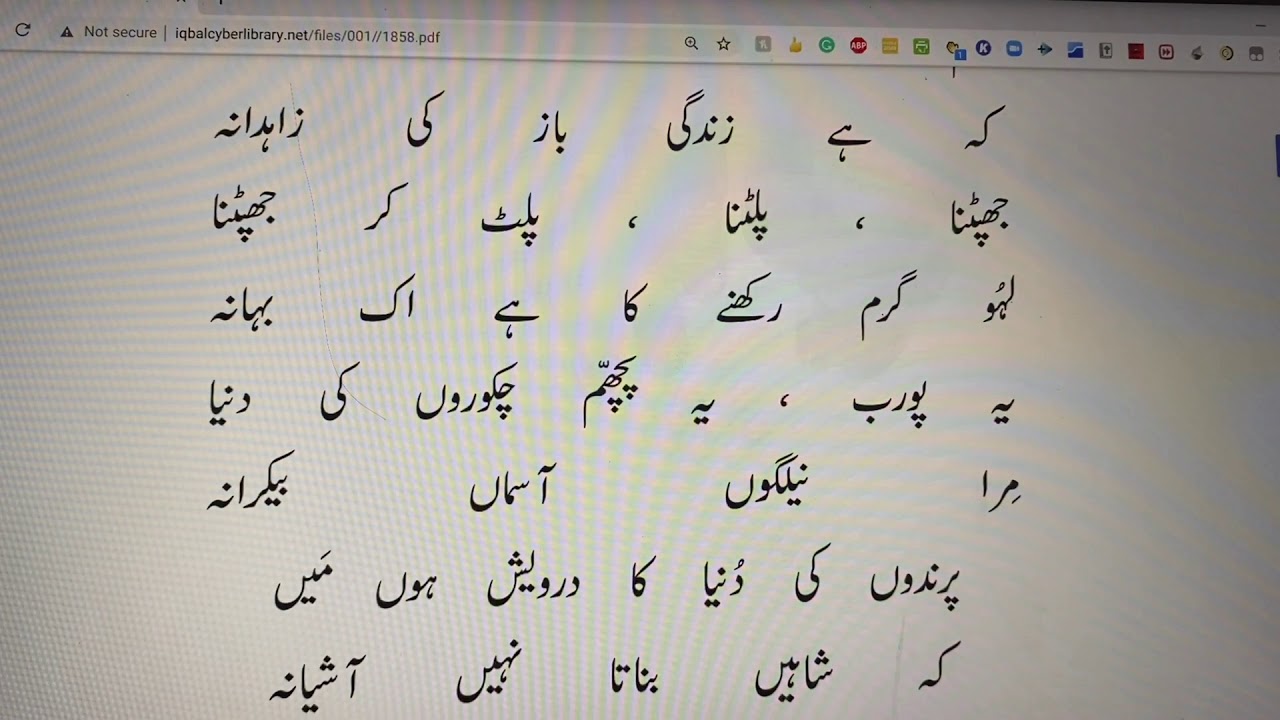 Not secure | iqbalcyberlibrary.net/files/001//1858.pdf
ABP
1
K
کہ ہے زندگی باز کی زاہدانہ
جھپٹنا ، پلٹنا ، پلٹ کر جھپٹنا
لہُو گرم رکھنے کا ہے اک بہانہ
یہ پورب ، یہ پچھّم چکوروں کی دنیا
مِرا نیلگوں آسماں بیکرانہ
پرندوں کی دُنیا کا درویش ہوں مَیں
کہ شاہیں بناتا نہیں آشیانہ